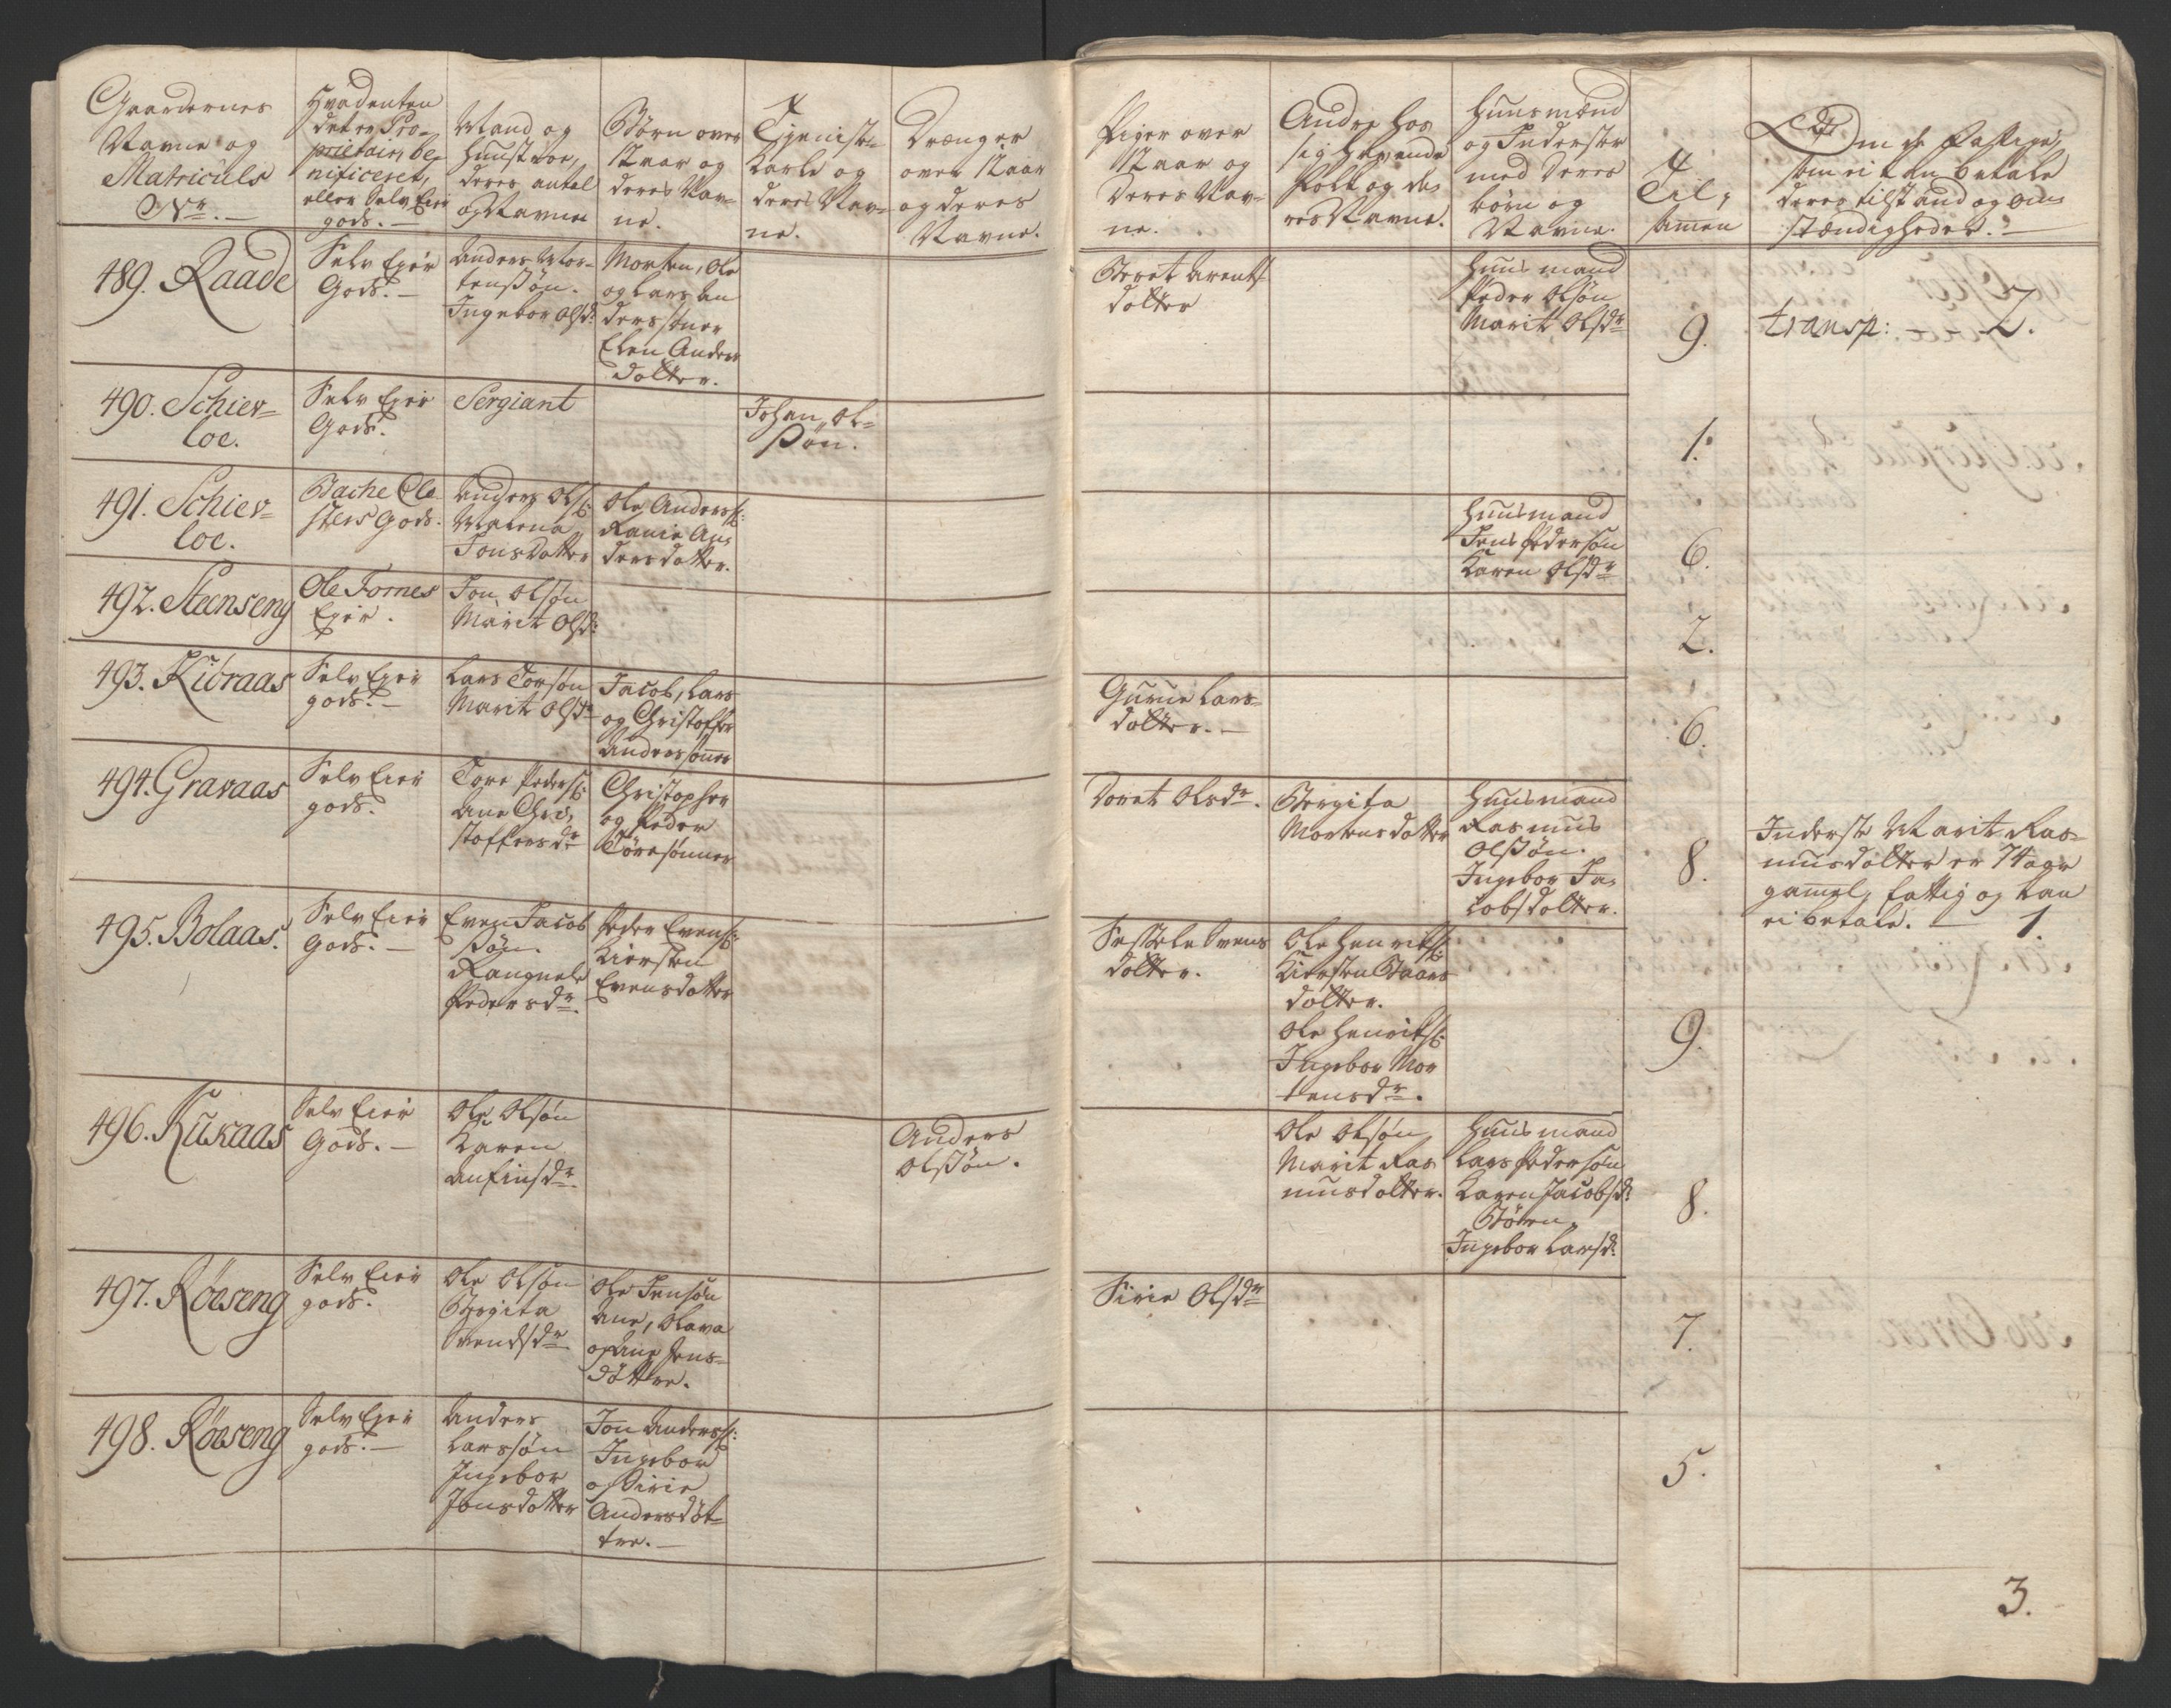 Gaardernes
Navne og
Matriculs
No. —
Hvadenten
det er Pro-
prietair, be-
nificeret,
eller Selv Eier
gods. —
Mand og
Huustroe,
deres antal
og Navne
Børn over
12 aar og
deres Nav-
ne.
Tjeniste-
Karle og
deres Nav-
ne.
Drænger
over 12 aar
og deres
Navne.
Piger over
12 aar og
deres Nav-
ne.
Andre hos
sig havende
folk og de-
res Navne.
Huusmænd
og Inderster
med deres
børn og
Navne.
Til-
samen
Om de Fattige,
som ei kan betale
deres tilstand og om-
stændigheder. —
489. Raade
Selv Eyer
Gods. —
Anders Mor-
tensøn.
Ingebor Olsdr
Morten, Ole
og Lars An
derssøner
Elen Anders
dotter.
Beret Arents-
dotter
Huusmand
Peder Olsøn
Marit Olsdr
9.
transp: — 2.
490. Schier-
loe.
Selv Eyer
Gods.
Sergiant
Johan Ol-
søn.
1.
491. Schier-
loe.
Bache Clo
sters Gods.
Anders Ols:
Malena
Jonsdatter
Ole Anders:
Ranie An-
dersdotter.
Huusmand
Jens Pedersøn
Karen Olsdr
6.
492. Steenseng
Ole Fornes
Eyer.
Jon Olsøn
Marit Olsdr
2.
493. Kibraas
Selv Eyer
gods. —
Lars Torsøn
Marit Olsdr
Jacob, Lars
og Christoffer
Anderssøner
Gurue Lars-
dotter. —
6.
494. Gravaas
Selv Eier
gods.
Tore Peders:
Ane Chri-
stoffersdr
Christopher
og Peder
Töresønner
Doret Olsdr.
Bergita
Mortensdotter
Huusmand
Rasmus
Olssøn.
Ingebor Ja-
cobsdotter.
8.
Inderste Marit Ras-
musdotter er 74 aar
gamel, fattig og kan
ei betale. — 1.
495. Bolaas.
Selv Eier
Gods. —
Even Jacob
søn.
Rangnele
Pedersdr.
Peder Evens:
Kiersten
Evensdotter
Sessele Svens
dotter.
Ole Henriks:
Kiersten Baars
dotter.
Ole Henriks:
Ingebor Mor
tensdr.
9.
496. Kukaas
Selv Eier
Gods. —
Ole Olsøn
Karen
Anfinsdr.
Anders
Olssøn.
Ole Olsøn
Marit Ras
musdotter.
Huusmand
Lars Pedersøn
Karen Jacobsdr
Børn
Ingebor Larsdr
8.
497. Röeseng
Selv Eier
gods.
Ole Olsøn
Bergita
Svendsdr
Ole Jensøn
Ane, Olava
og Ane Jens-
döttre.
Sirie Olsdr
7.
498. Röeseng
Selv Eyer
gods. —
Anders
Larssøn
Ingebor
Jonsdotter
Jon Anders:
Ingebor
og Sirie
Andersdöt-
tre. —
5.
3.